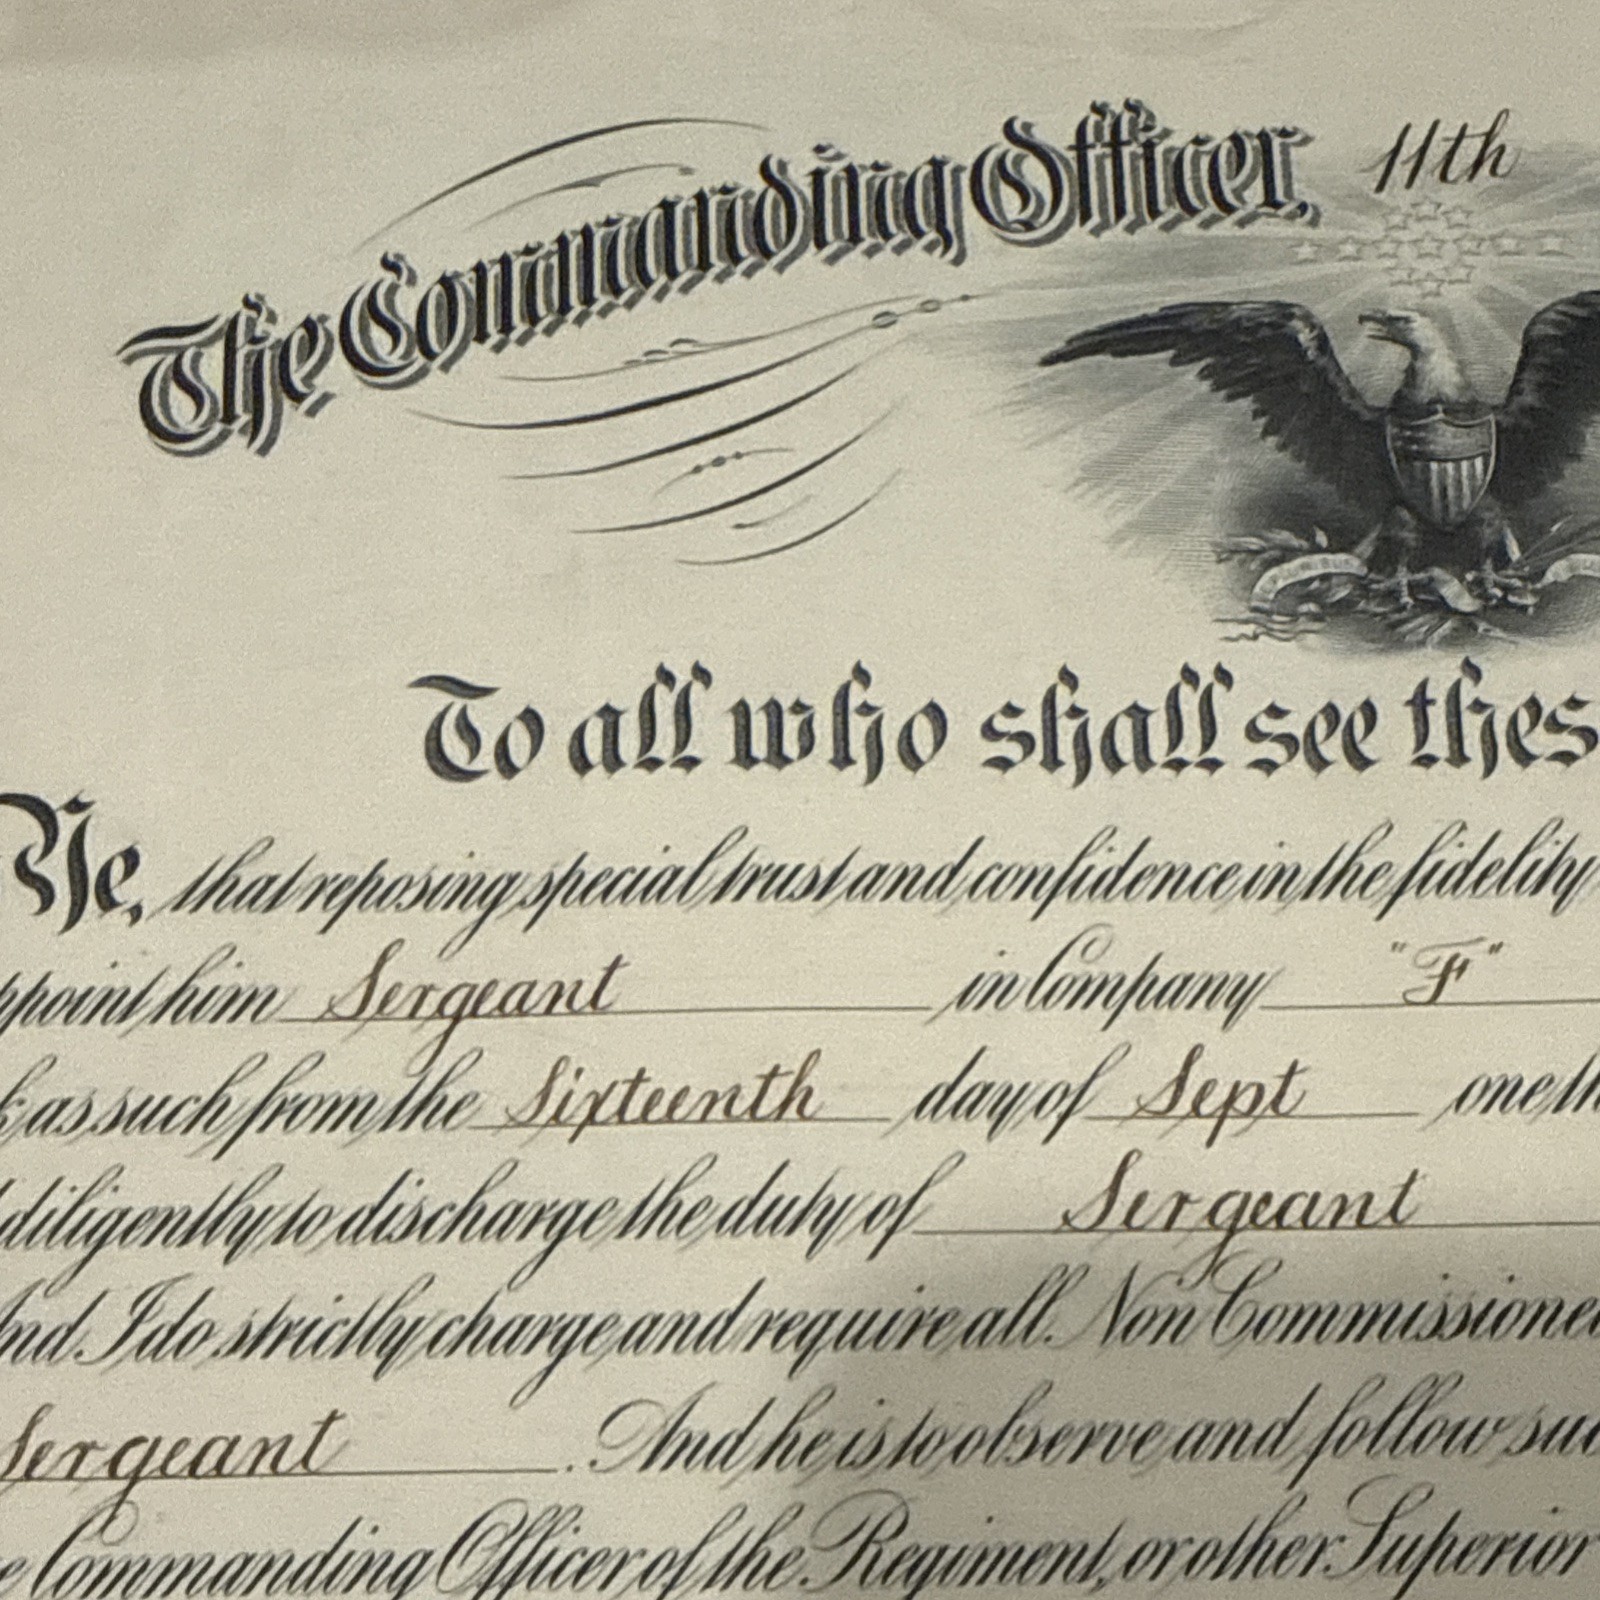 The Commanding Officer, 11th
To all who shall see thes
Ye, that reposing special trust and confidence in the fidelity
ppoint him Sergeant in Company "F"
k as such from the Sixteenth day of Sept one th
diligently to discharge the duty of Sergeant
And I do strictly charge and require all Non Commissione
Sergeant . And he is to observe and follow suc
e Commanding Officer of the Regiment, or other Superior